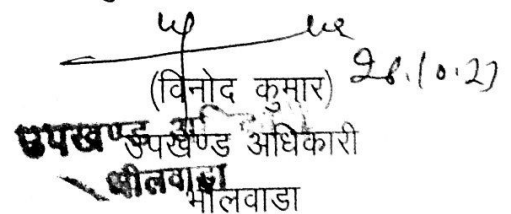 28.10.27
(विनोद कुमार)
उपखण्ड अधिकारी
उपखण्ड अधिकारी
भीलवाडा
भीलवाडा